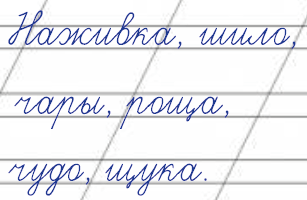 Наживка, шило,
чары, роща,
чудо, щука.